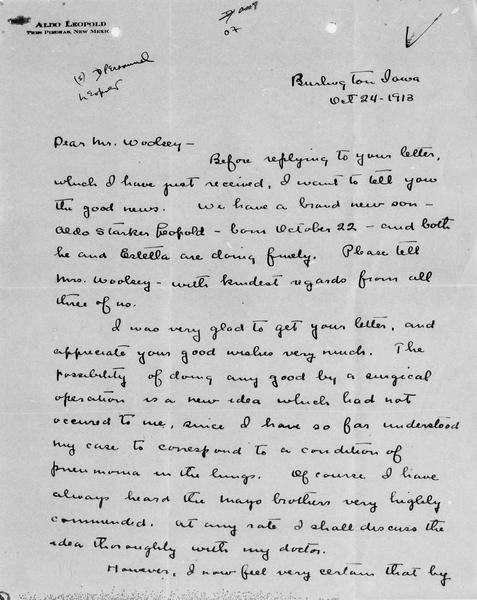 ALDO LEOPOLD
TRES PIEDRAS, NEW MEXIC
07
(s) Personnel
Leopold
Burlington Iowa
Oct 24-1913
Dear Mr. Woolsey-
Before replying to your letter,
which I have just received, I want to tell you
the good news. We have a brand new son-
Aldo Starker Leopold - born October 22 - and both
he and Estella are doing finely. Please tell
Mrs. Woolsey - with kindest regards from all
three of us.
I was very glad to get your letter, and
appreciate your good wishes very much. The
possibility of doing any good by a surgical
operation is a new idea which had not
occured to me, since I have so far understood
my case to correspond to a condition of
pneumonia in the lungs. Of course I have
always heard the Mayo brothers very highly
commended. At any rate I shall discuss the
idea thoroughly with my doctor.
However, I now feel very certain that by